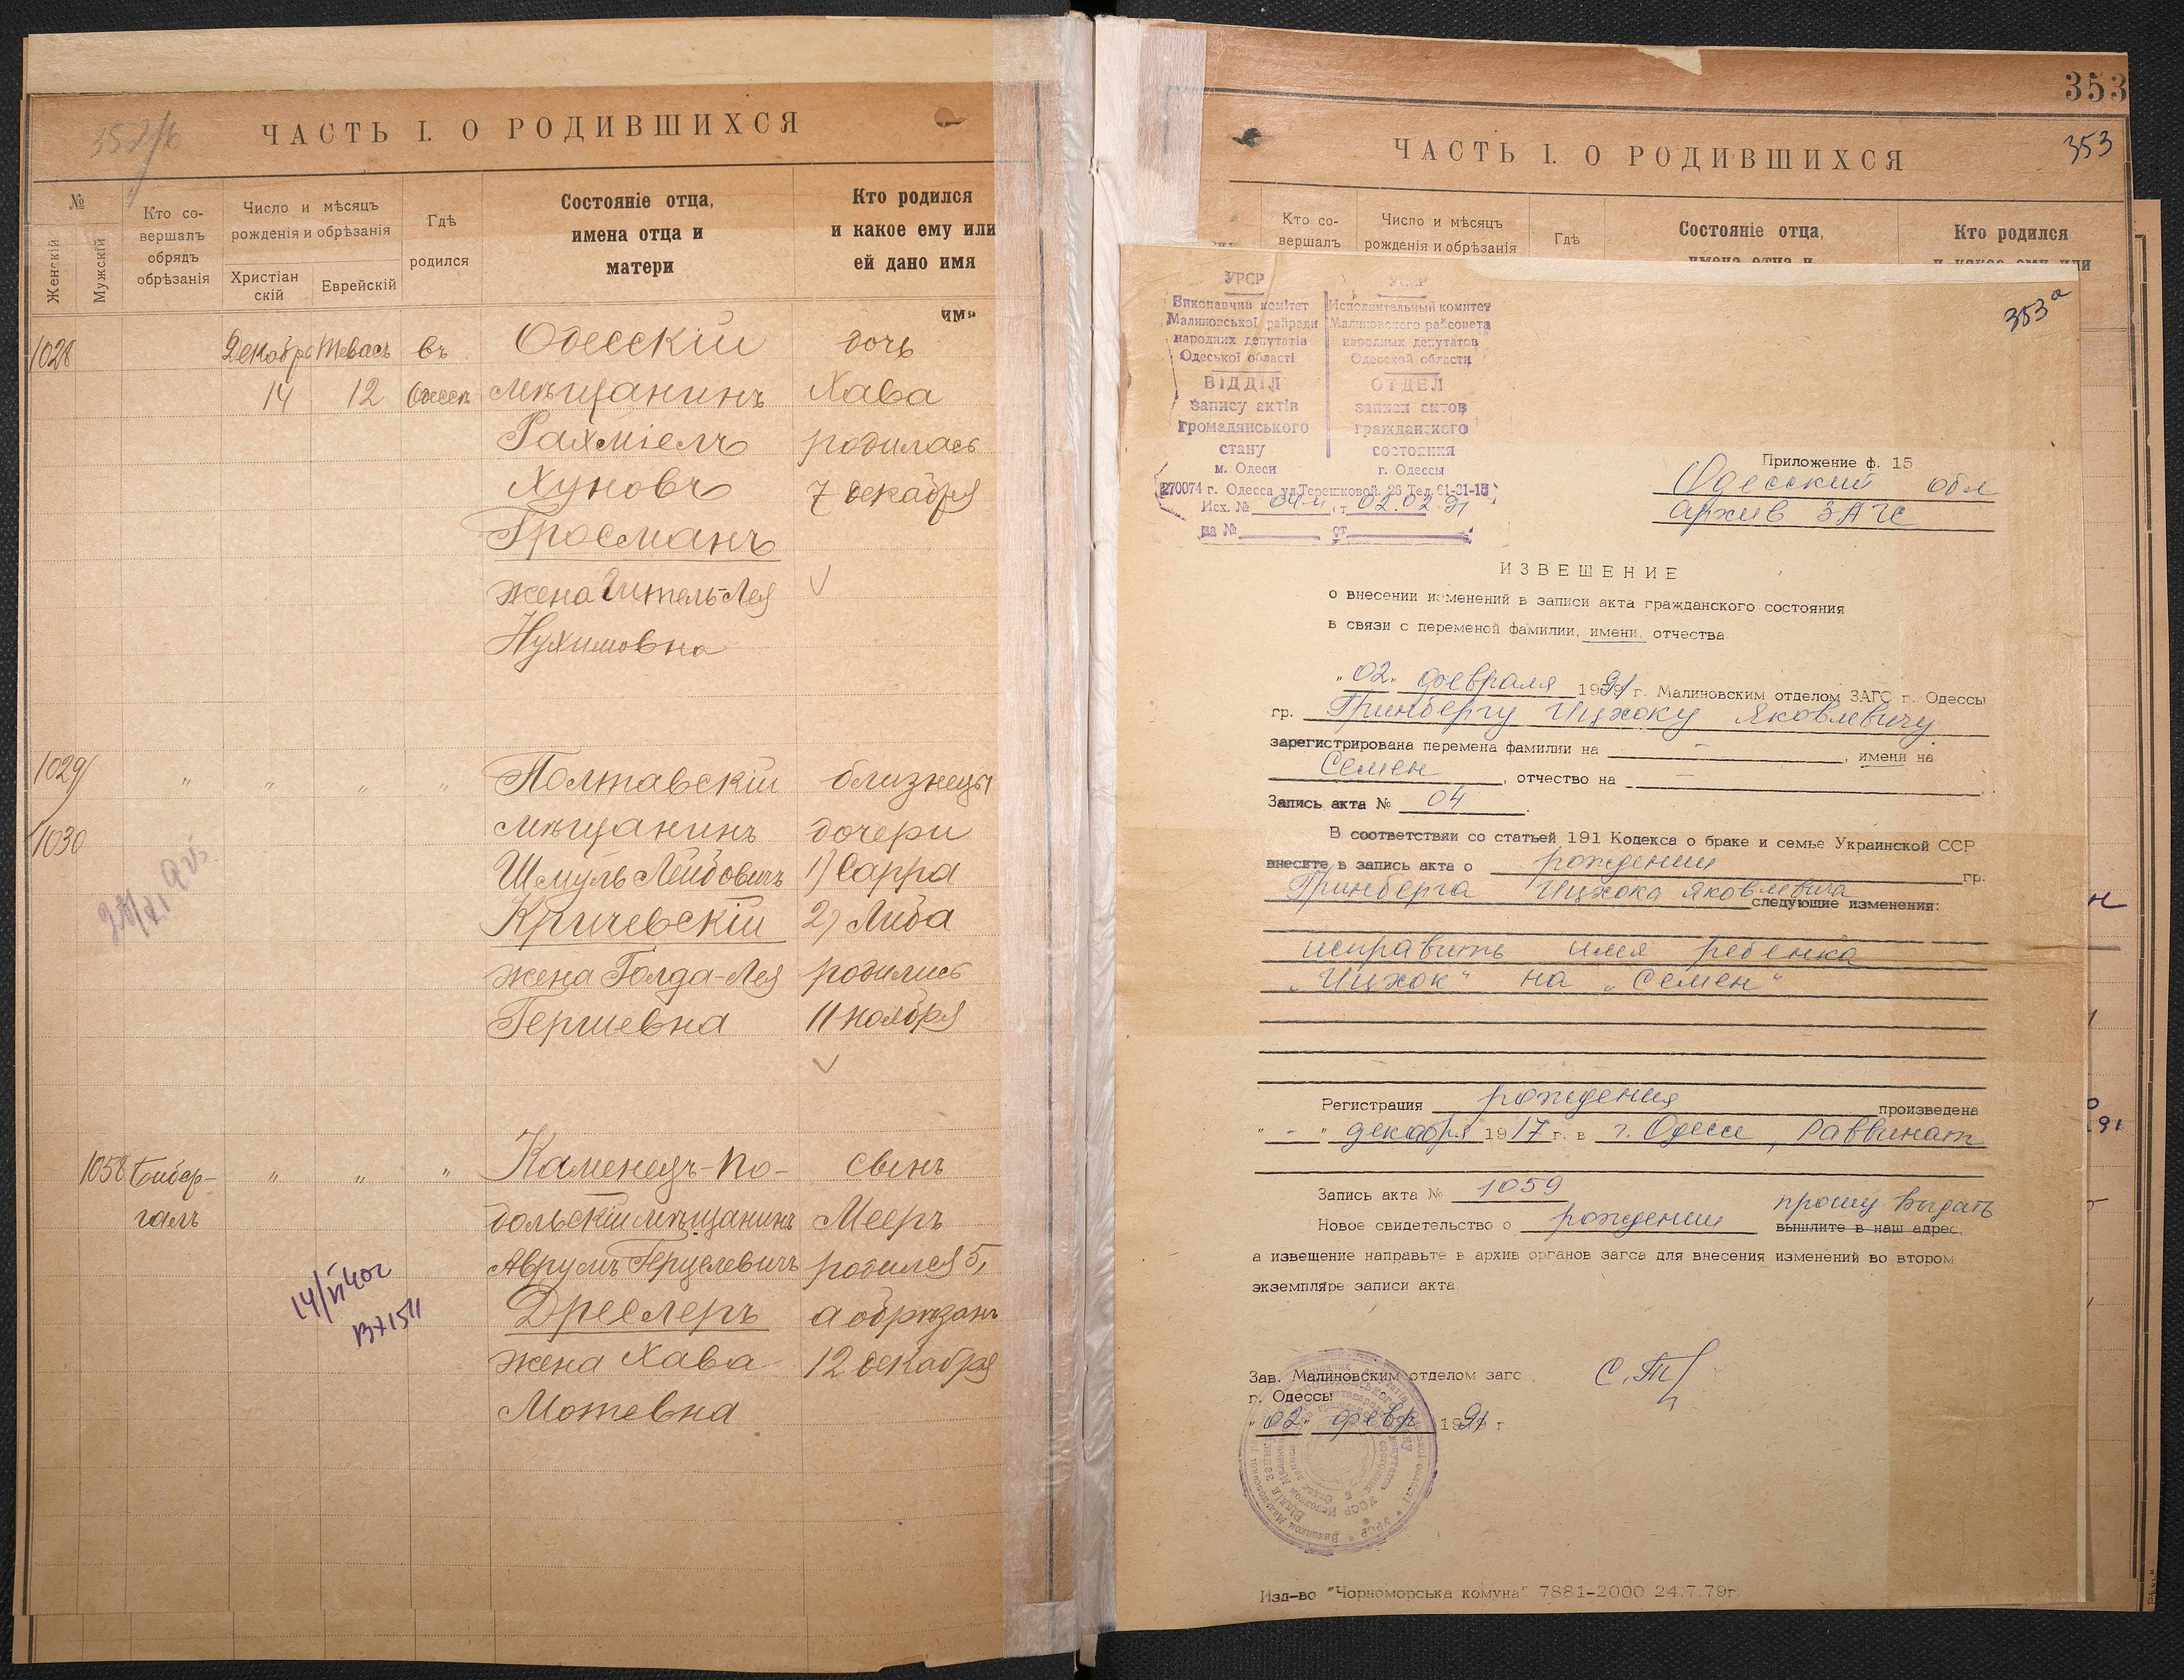 ЧАСТЬ I. О РОДИВШИХСЯ
№
Женскій
Мужскій
Кто со-
вершалъ
обрядъ
обрѣзанія
Число и мѣсяцъ
рожденія и обрѣзанія
Христіан
скій
Еврейскій
Гдѣ
родился
Состояніе отца,
имена отца и
матери
Кто родился
и какое ему или
ей дано имя
имя
1028 Декабрь Тевась въ Одесскій дочь
14 12 Одессѣ мѣщанинъ Хава
Рахміелъ родилась
Хуновъ 7 декабря
Гросманъ
жена Гитель-Лея
Нухимовна
1029 " " " " Полтавскій близнецы
1030 мѣщанинъ дочери
Шмуль Лейбовичъ 1) Сарра
Кричевскій 2) Либа
жена Голда-Лея родились
Гершевна 11 ноября
1058 Бибер- " " " Каменецъ-По- сынъ
галъ дольскій мѣщанинъ Мееръ
Аврумъ Герцелевичъ родился 5,
Дреслеръ а обрѣзанъ
жена Хава 12 декабря
Мотевна
353
ЧАСТЬ I. О РОДИВШИХСЯ
353
Кто со-
вершалъ
Число и мѣсяцъ
рожденія и обрѣзанія
Гдѣ
Состояніе отца,
имена отца и
Кто родился
и какое ему или
353а
УРСР
Виконавчий комітет
Малиновської райради
народних депутатів
Одеської області
ВІДДІЛ
запису актів
громадянського
стану
м. Одеси
УССР
Исполнительный комитет
Малиновского райсовета
народных депутатов
Одесской области
ОТДЕЛ
записи актов
гражданского
состояния
г. Одессы
270074 г. Одесса ул. Терешковой, 26 Тел. 61-31-15
Исх. № 04-и от 02.02.91
на № от
Приложение ф. 15
Одесский обл
архив ЗАГС
ИЗВЕШЕНИЕ
о внесении изменений в записи акта гражданского состояния
в связи с переменой фамилии, имени, отчества
"02" февраля 1991 г. Малиновским отделом ЗАГС г. Одессы
гр. Гринбергу Ицхоку Яковлевичу
зарегистрирована перемена фамилии на - , имени на
Семен , отчество на -
Запись акта № 04
В соответствии со статьей 191 Кодекса о браке и семье Украинской ССР
внесите в запись акта о рождении гр.
Гринберга Ицхока Яковлевича следующие изменения:
исправить имя ребенка
"Ицхок" на "Семен"
Регистрация рождения произведена
" - " декабря 1917 г. в г. Одессе, Раввинат
Запись акта № 1059
прошу выдать
Новое свидетельство о рождении вышлите в наш адрес,
а извещение направьте в архив органов загса для внесения изменений во втором
экземпляре записи акта
Зав. Малиновским отделом загс
г. Одессы
"02" февр 1991 г.
Изд-во "Чорноморська комуна" 7881-2000 24.7.79г.